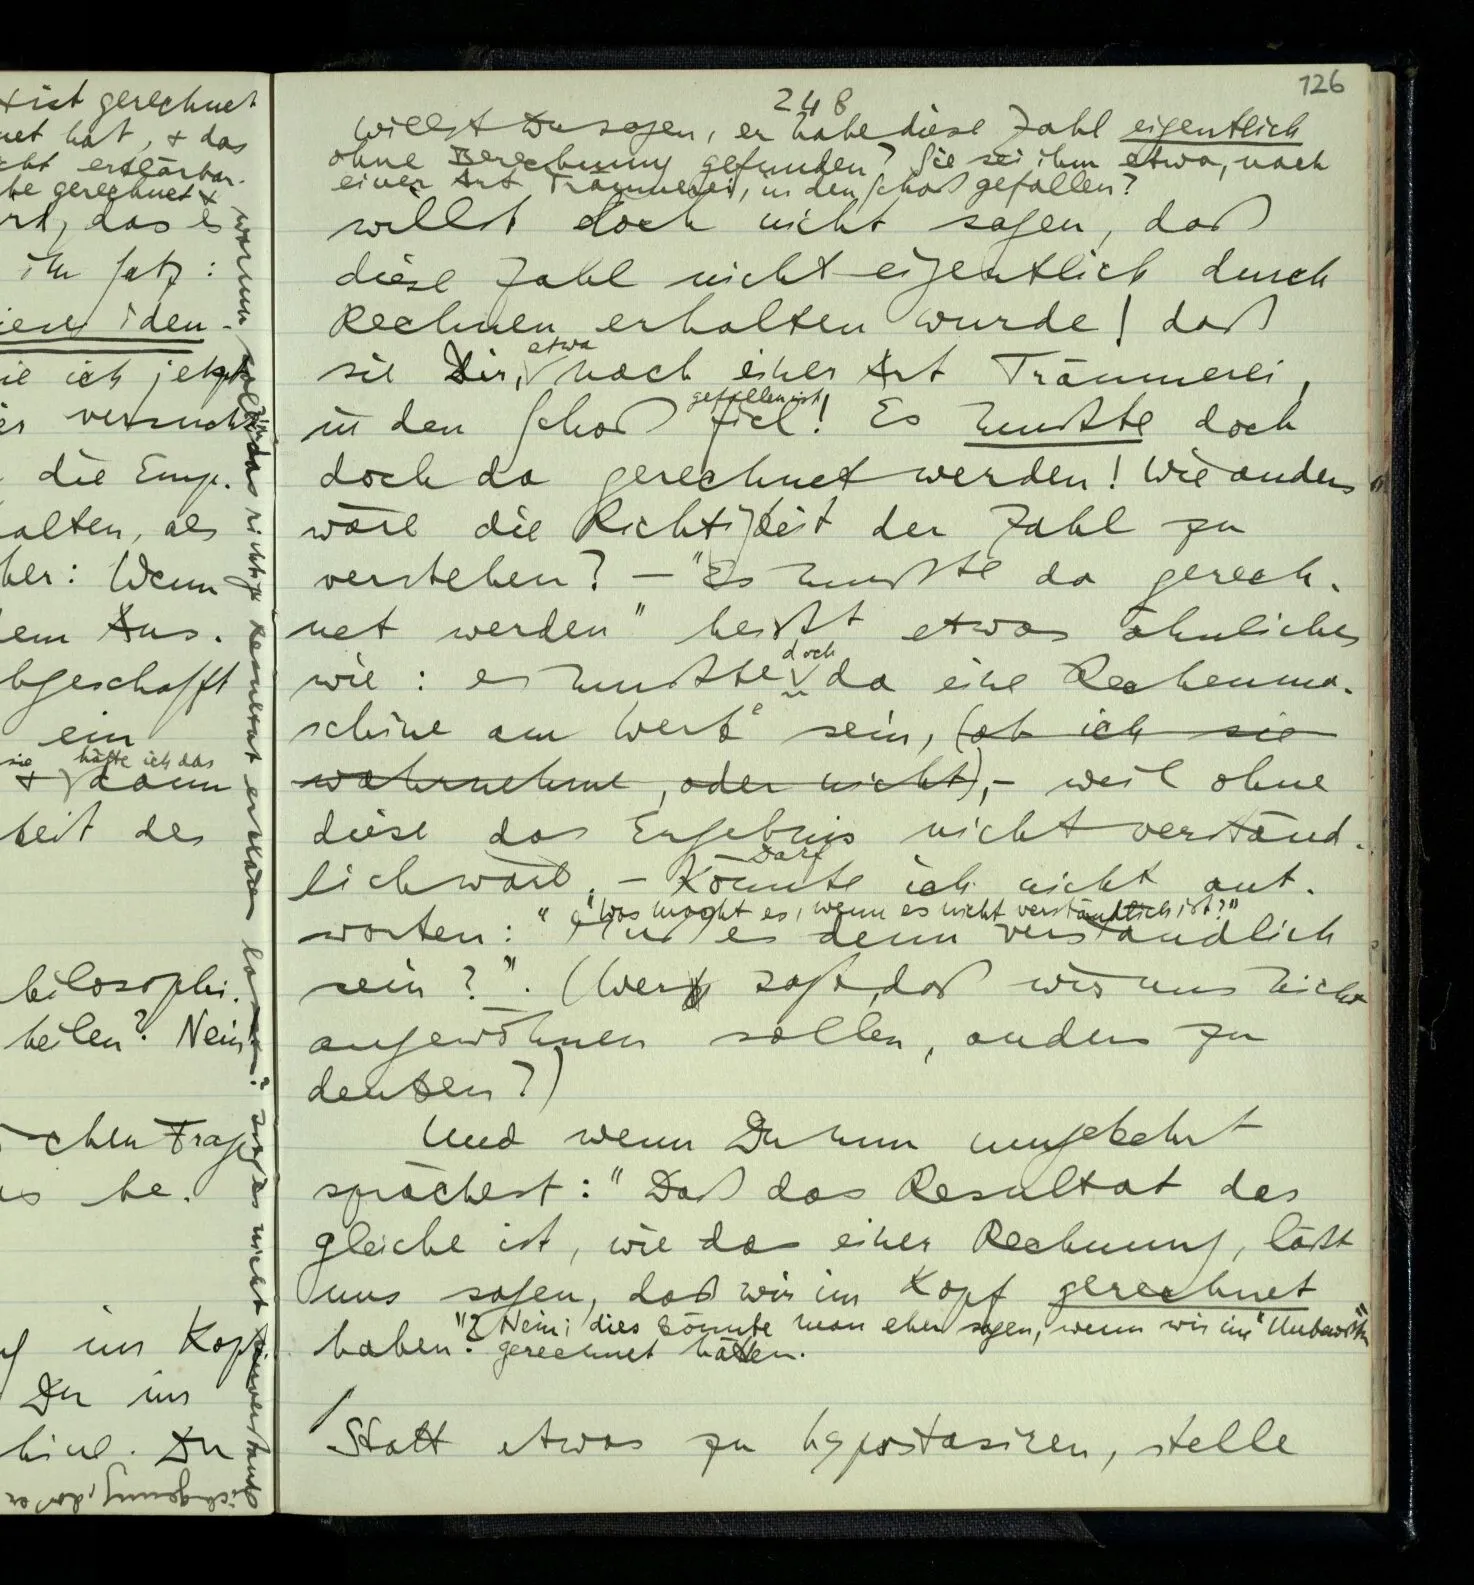 126
248
willst Du sagen, er habe diese Zahl eigentlich
ohne Berechnung gefunden? Sie sei ihm etwa, nach
einer Art Träumerei, in den Schoß gefallen?
willst doch nicht sagen, daß
diese Zahl nicht eigentlich durch
Rechnen erhalten wurde! daß
etwa
sie Dir, nach einer Art Träumerei,
gefallen ist
in den Schoß fiel! Es mußte doch
doch da gerechnet werden! Wie anders
wäre die Richtigkeit der Zahl zu
verstehen? – "Es mußte da gerech-
net werden" heißt etwas ähnliches
doch
wie: es mußte da eine Rechenma-
schine am Werke sein, (ob ich sie
wahrnehme, oder nicht), – weil ohne
diese das Ergebnis nicht verständ-
Darf
lich wäre. – Könnte ich nicht ant-
"Was macht es, wenn es nicht verständlich ist?"
worten: "Muß es denn verständlich
sein?". (Wer sagt, daß wir uns nicht
angewöhnen sollen, anders zu
denken?)
Und wenn Du nun umgekehrt
sprächest: "Daß das Resultat das
gleiche ist, wie das einer Rechnung, läßt
uns sagen, daß wir im Kopf gerechnet
haben."? Nein; dies könnte man eher sagen, wenn wir im "Unbewußten"
gerechnet hätten.
/ Statt etwas zu hypostasiren, stelle
ist gerechnet
net hat, + das
cht erklärbar.
be gerechnet +
rt, das es
ihr Satz:
iden-
ie ich jetzt
er versucht
die Emp.
alten, als
her: Wenn
em Aus.
bgeschafft
ein
sie hätte ich das
+ dann
keit des
hilosophi.
heilen? Nein
schen Frage
as be.
im Kopf
Du ins
hine. Du
warum soll sich das richtige Resultat erklären lassen?